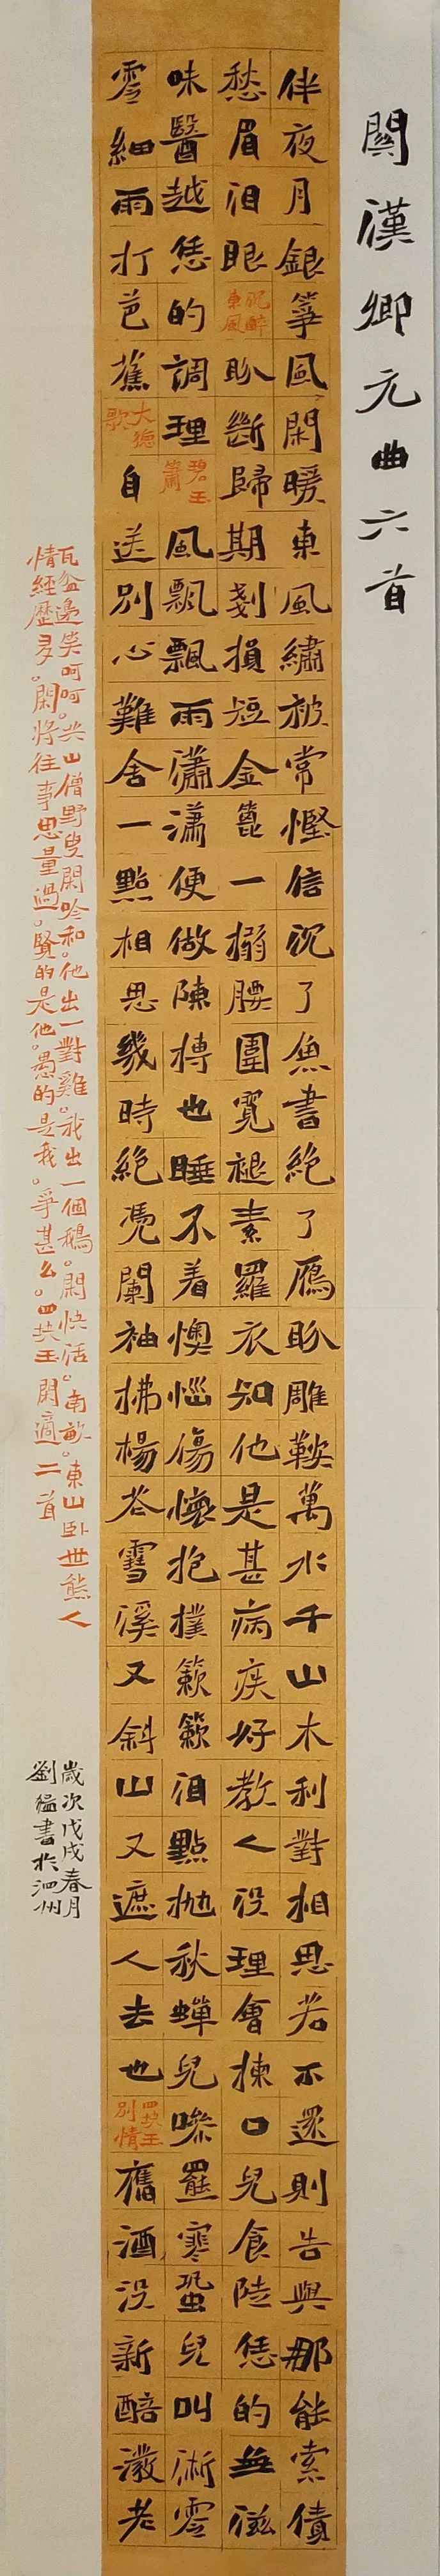 關漢卿元曲六首
伴夜月銀箏風閑暖東風繡被常慳信沉了魚書絕了鴈盼雕鞍萬水千山木利對相思若不還則告與那能索債
愁眉泪眼祝醉東風盼斷歸期劃損短金篦一搦腰圍寬褪素羅衣知他是甚病疾好教人没理會揀口兒食陸恁的無滋
味醫越恁的調理碧玉簫風飄飄雨瀟瀟便做陳摶也睡不着懊惱傷懷抱撲簌簌泪點抛秋蟬兒噪罷寒蛩兒叫淅零
零細雨打芭蕉大德歌自送別心難舍一點相思幾時絕凭闌袖拂楊花雪溪又斜山又遮人去也四塊玉別情舊酒没新醅潑老
瓦盆邊笑呵呵。共山僧野叟閑吟和。他出一對雞。我出一個鵝。閑快活。南畝。東山卧世態人
情經歷多。閑將往事思量過。賢的是他。愚的是我。爭甚么。四块玉閑適二首
歲次戊戌春月
劉猛書於泗州